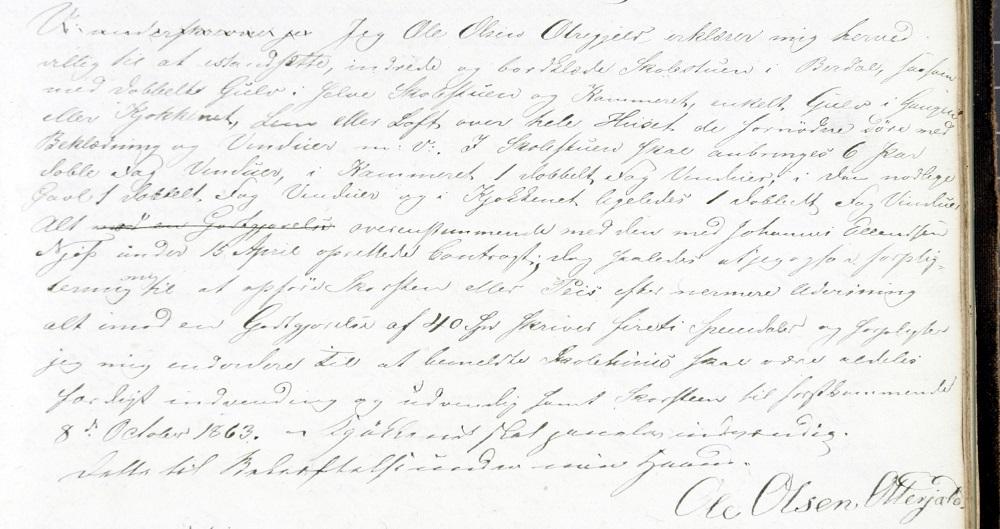 Vi underskrevne er Jeg Ole Olsen Otregjels erklærer mig herved
villig til at istandsætte, indrede og bordklæde Skolestuen i Berdal, saasom
med dobbelte Gulv i selve Skolestuen og Kammeret, enkelt Gulv i Gangen
eller Kjøkkenet, Lem eller Loft over hele Huset de fornødne Døre med
Beklædning og Vinduer m: v:. I Skolestuen skal anbringes 6 Par
doble Fag Vinduer, i Kammeret 1 dobbelt Fag Vinduer, i den nordlige
Gavl 1 dobbelt Fag Vinduer og i Kjøkkenet ligeledes 1 dobbelt Fag Vinduer
Alt med en Godtgjørelse overensstemmende med den med Johannes Ellendsen
Njøs under 15 April oprettede Contragt; dog saaledes at jeg ogsaa forplig-
ter mig til at opføre Skorsten eller Peis efter nermere Udvisning
alt imod en Godtgjørelse af 40 Spd skriver fireti Speciedaler og forpligter
jeg mig endvidere til at bemeldte Skolehuus skal være aldeles
færdigt indvendig og udvendig samt Skorsteen til førstkommende
8de October 1863. – Kjøkkenet skal panelas indvændig.
Dette til Bekræftelse under min Haand.
Ole Olsen Otterjæls.